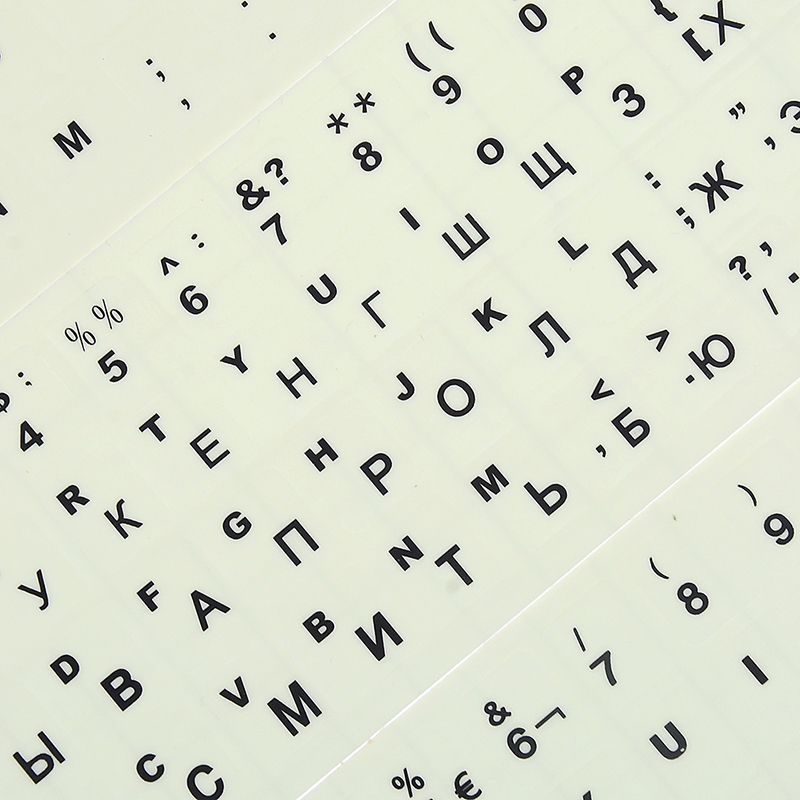 M ; ,
: .
; 4
% % 5
^ : 6
& ? 7
* * 8
( ( 9
0
У
R К
T Е
Y Н
U Г
I Ш
O Щ
P З
{ [ Х
Ы
D В
F А
G П
H Р
J О
K Л
L Д
: ; Ж
" ' Э
C С
V М
B И
N Т
M Ь
< , Б
> . Ю
? , / .
% €
& 6
/ 7
( 8
) 9
U
I